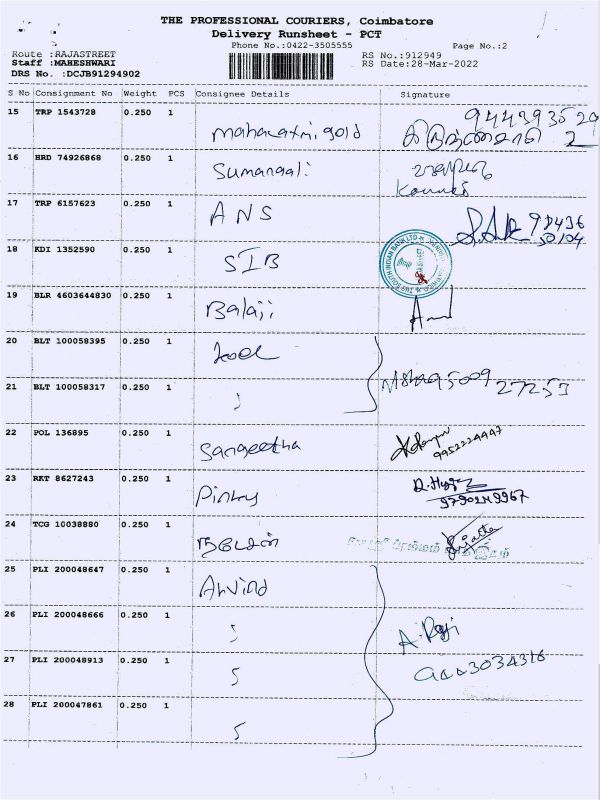 THE PROFESSIONAL COURIERS, Coimbatore
Delivery Runsheet - PCT
Phone No.:0422-3505555 Page No.:2
Route :RAJASTREET RS No.:912949
Staff :MAHESHWARI RS Date:28-Mar-2022
DRS No. :DCJB91294902
S No Consignment No Weight PCS Consignee Details Signature
15 TRP 1543728 0.250 1 gold
16 HRD 74926868 0.250 1 Sumangali
17 TRP 6157623 0.250 1 ANS
18 KDI 1352590 0.250 1 SIB
THE SOUTH INDIAN BANK LTD
19 BLR 4603644830 0.250 1 Balaji
20 BLT 100058395 0.250 1
21 BLT 100058317 0.250 1
22 POL 136895 0.250 1 Sangeetha
9952224947
23 RKT 8627243 0.250 1 Pinky
24 TCG 10038880 0.250 1
25 PLI 200048647 0.250 1 Arvind
26 PLI 200048666 0.250 1 A. Raji
27 PLI 200048913 0.250 1
28 PLI 200047861 0.250 1